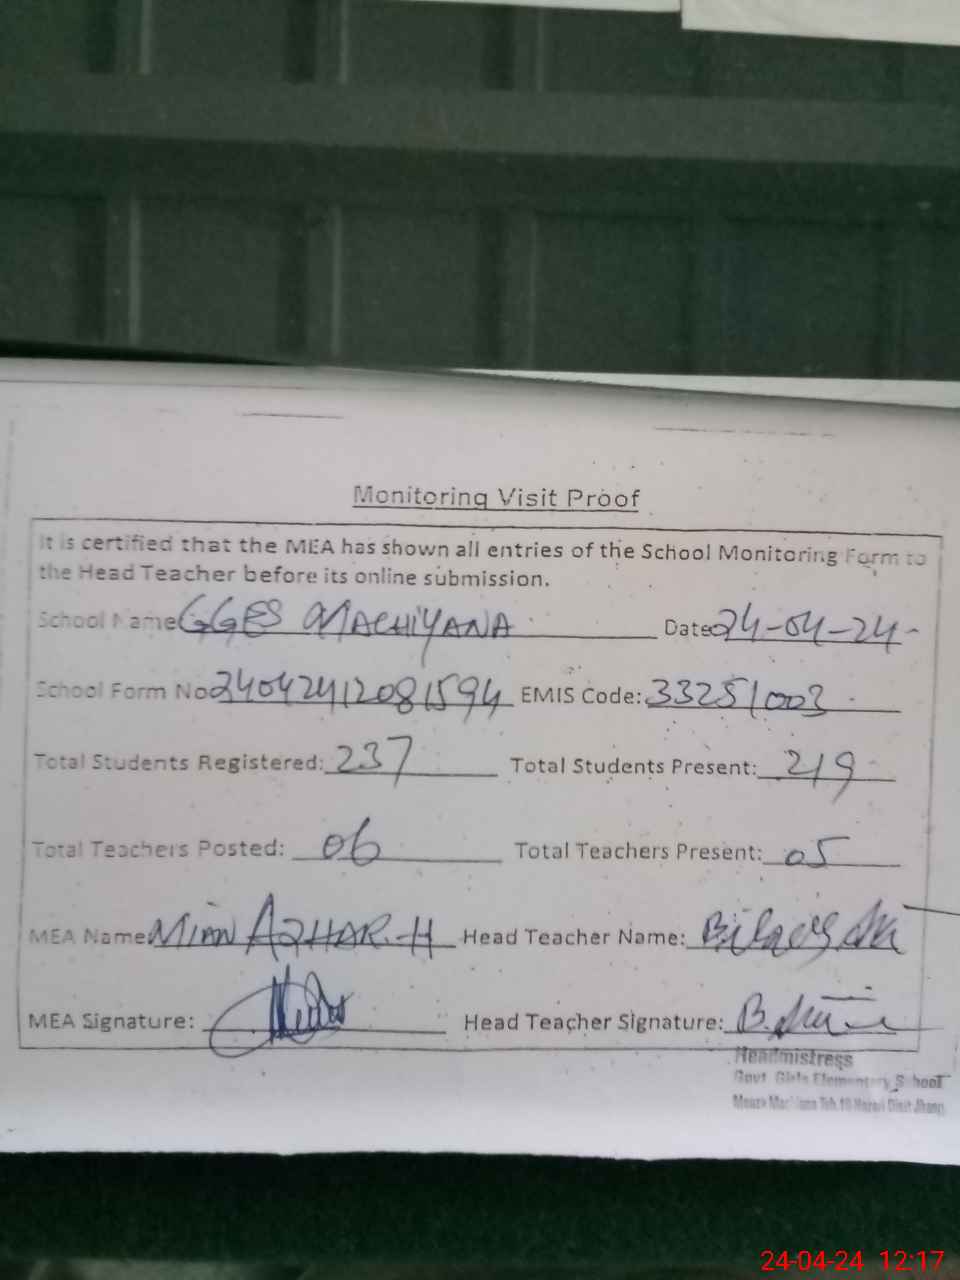 Monitoring Visit Proof
It is certified that the MEA has shown all entries of the School Monitoring Form to
the Head Teacher before its online submission.
School Name GGES MACHIYANA Date 24-04-24
School Form No 240424120815 94 EMIS Code: 33251003
Total Students Registered: 237 Total Students Present: 219
Total Teachers Posted: 06 Total Teachers Present: 05
MEA Name MIAN AZHAR.H Head Teacher Name:
MEA Signature: Head Teacher Signature: B.
Headmistress
Govt. Girls Elementary School
Teh. 18 Hazari Distt Jhang
24-04-24 12:17